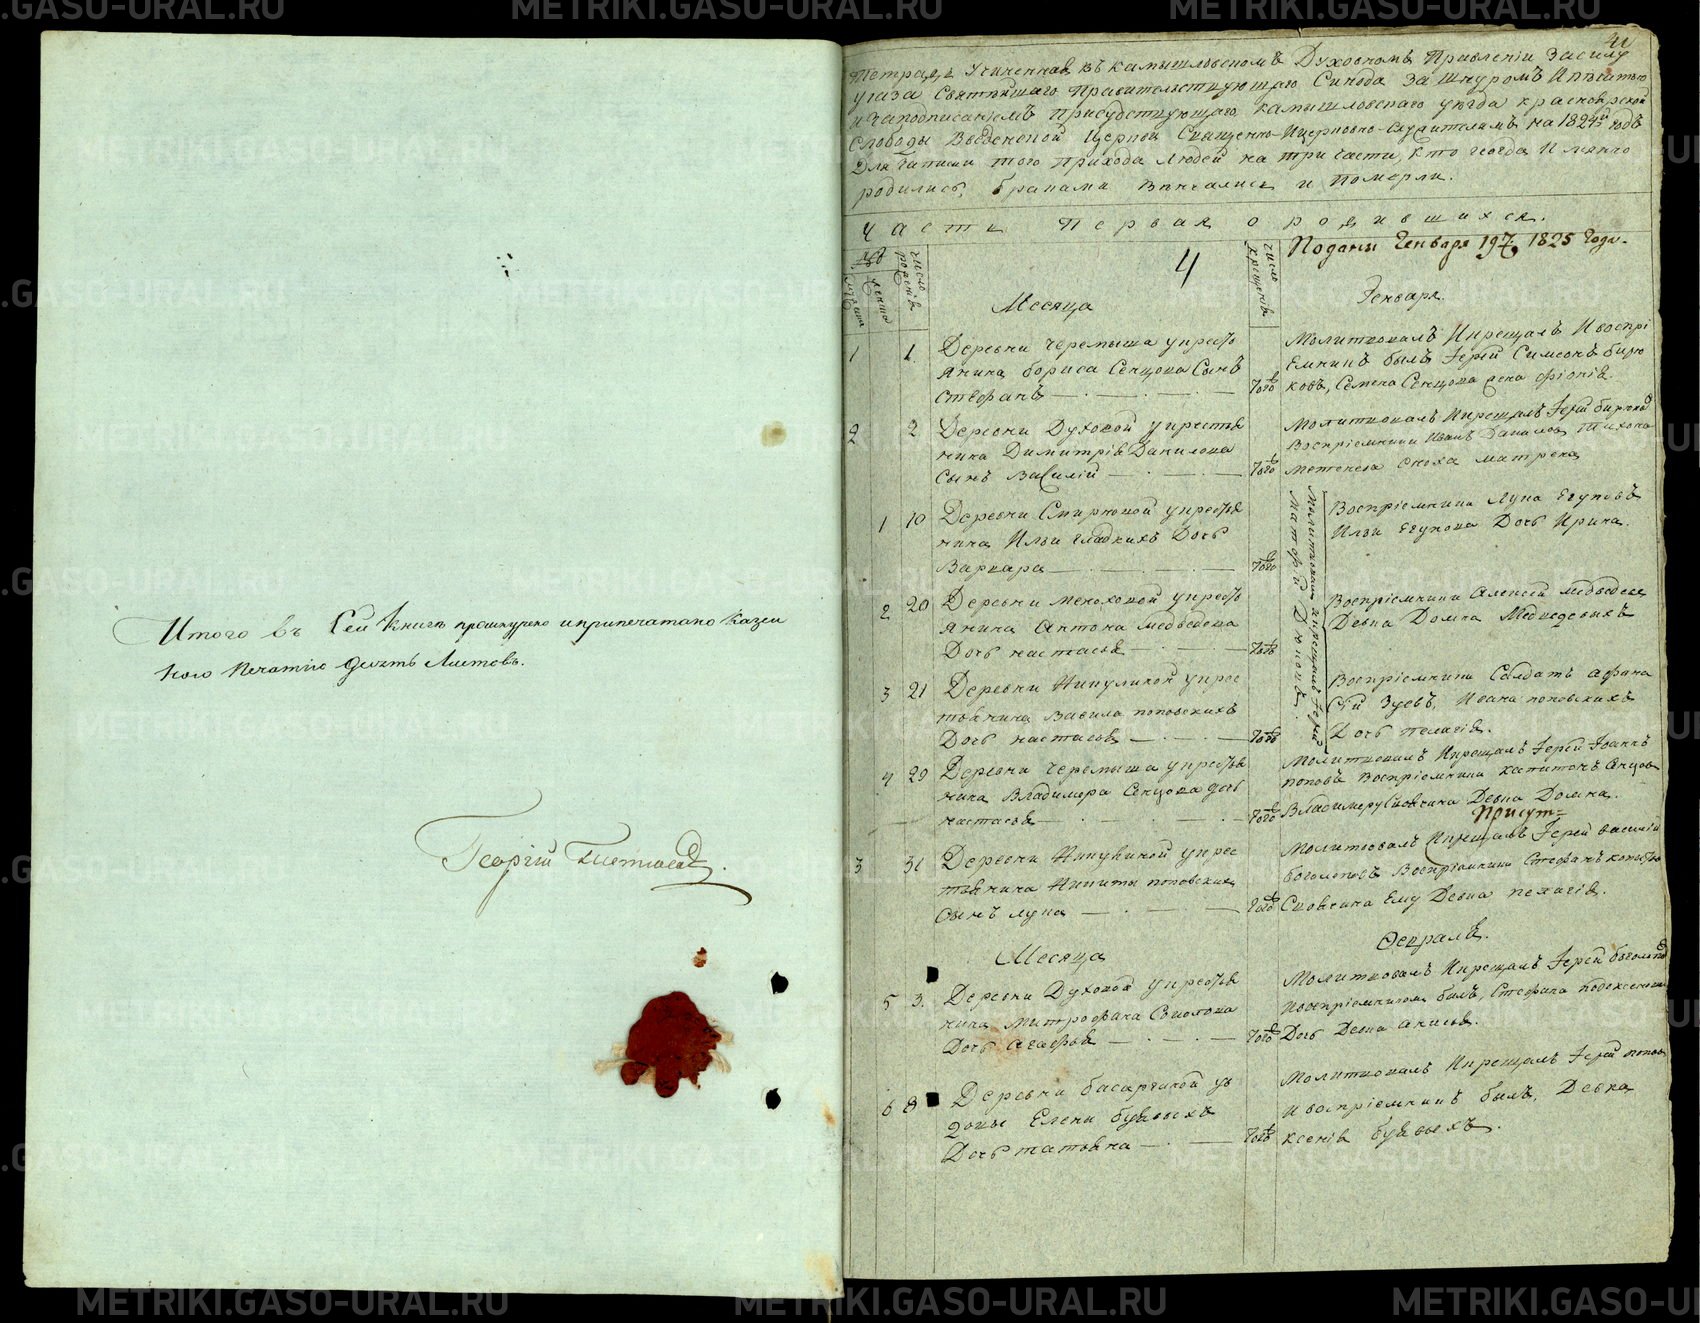 Итого въ Сей книгѣ прошнурено ипрпипечатано казен
ною печатію десять Листовъ.
Георгій
41
Тетрадь Учиненная въ камышловскомъ Духовномъ Правленіи Засилу
указа Святѣйшаго Правительствующаго Синода за шнуромъ Ипечатью
изаподписаніемъ Присудствующаго камышловскаго уѣзда красноярской
Слободы Введенской Церкви Священно-Ицерковно-служителямъ на 1824й годъ
Для Записки того прихода людей на три части, кто когда И изъкого
родились, браками вѣнчались и померли.
Часть Первая о родившихся.
Поданы Генваря 19го 1825 Года.
4
число рожденія
число крещенія
Месяца
Генваря.
1 1 Деревни черемыша укресть
янина бориса Сенцова Сынъ
Стефанъ
Того
Молитвовалъ Икрещалъ Ивоспрі
Емникъ былъ Іерей Симеонъ бирю
ковъ, Семена Сенцова жена Фіонія.
2 2 Деревни Духовой укрестья
нина Димитрія Данилова
Сынъ Василій
Того
Молитвовалъ Икрещалъ Іерей бирюков
Воспріемники Иванъ Данилов Тихона
сноха матрена
1 10 Деревни Смирновой укрестья
нина Ильи гладкихъ Дочь
Варвара
Того
Молитвовалъ Икрещалъ Іерей
Матфій Дягоновъ.
Воспріемники Лука Егуновъ
Ильи Егунова Дочь Ирина.
2 20 Деревни меноховой укресть
янина Антона медведева
Дочь настасья
Того
Воспріемники Алексей медведев
Девка Домна Медведевыхъ
3 21 Деревни Никулиной укрес
тьянина Василя поповскихъ
Дочь настасья
Того
Воспріемники Солдатъ афана
Сій Зуевъ, Ивана поповскихъ
Дочь пелагія.
4 29 Деревни черемыша укрестья
нина Владимера Сенцова дочь
настасья
Того
Молитвовалъ Икрещалъ Іерей Іоаннъ
поповъ Воспріемники капитонъ Сенцов
Девка Домна.
Присут=
3 31 Деревни Никулиной укрес
тьянина Никиты поповских
Сынъ лука
Того
Молитвовалъ Икрещалъ Іерей василій
боголеповъ Воспріемники Стефанъ
Ему Девка пелагія.
Месяца
Февраль.
5 3. Деревни Духовой укрестья
нина митрофана Соколова
Дочь агафья
Того
Молитвовалъ Икрещалъ Іерей боголепов
Ивоспріемникомъ былъ, Стефана
Дочь Девка анисья.
6 8 Деревни басаргиной ув
довы Елены буявыхъ
Дочь татьяна
Того
Молитвовалъ Икрещалъ Іерей попов
Ивоспріемникъ былъ, Девка
ксенія буявыхъ.
METRIKI.GASO-URAL.RU